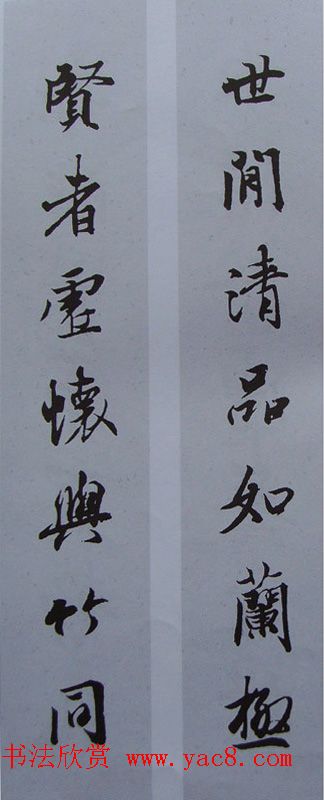 世間清品如蘭極
賢者虛懷與竹同
书法欣赏 www.yac8.com